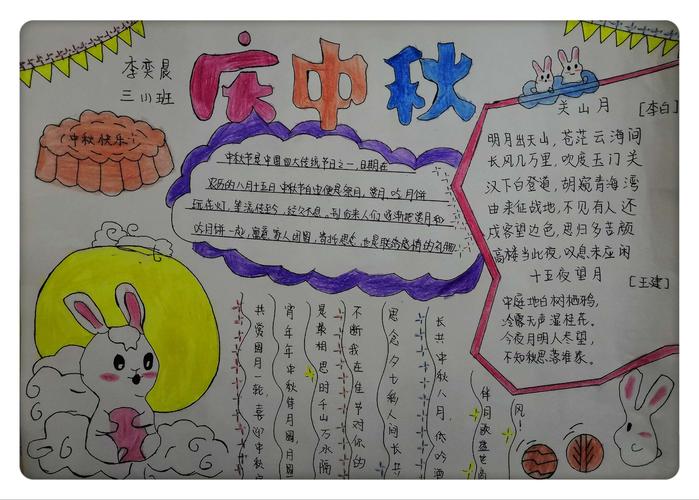 庆中秋
李奕晨
三（1）班
中秋快乐
中秋节是中国四大传统节日之一，日期在
农历的八月十五日 中秋节自古便是祭月、赏月、吃月饼
玩花灯，等流传至今，经久不息，到后来人们逐渐把赏月和
吃月饼一起，寓意家人团圆，寄托思念
关山月 [李白]
明月出天山，苍茫云海间
长风几万里，吹度玉门关
汉下白登道，胡窥青海湾
由来征战地，不见有人还
戍客望边色，思归多苦颜
高楼当此夜，叹息未应闲
十五夜望月 [王建]
中庭地白树栖鸦，
冷露无声湿桂花。
今夜月明人尽望，
不知秋思落谁家。
风！
伴月
长共中秋八月，低吟酒
思念夕七彩人间长共
不断我在佳节对你的
是亲相思时千山万水隔
宵年年中秋待月圆，月圆
共赏圆月一轮，喜迎中秋